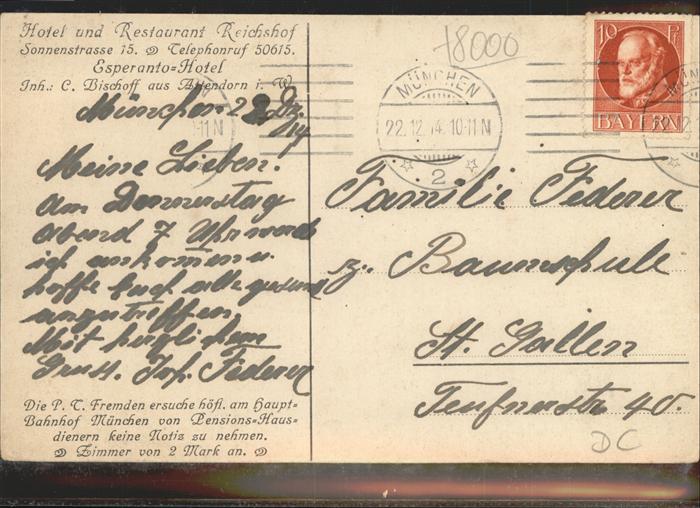 Hotel und Restaurant Reichshof
Sonnenstrasse 15. Telephonruf 50615.
Esperanto=Hotel
Inh.: C. Bischoff aus Attendorn i. W.
München 22 Dz.
14
Meine Lieben.
Am Donnerstag
abend 7 Uhr werde
ich ankommen u.
hoffe Euch alle gesund
anzutreffen,
Mit herzlichem
Gruss. Jos. Federer
Die P. T. Fremden ersuche höfl. am Haupt=
Bahnhof München von Pensions=Haus=
dienern keine Notiz zu nehmen.
Zimmer von 2 Mark an.
18000
MÜNCHEN
22.12.14.10-11N
2
10 Pf
BAYERN
Familie Federer
z. Baumschule
St. Gallen
Teufnerstr 40.
DC